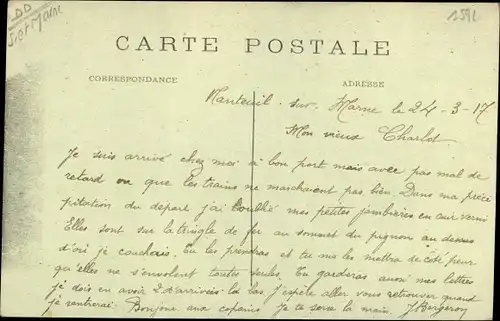 DD
Set Marne
1592
CARTE POSTALE
CORRESPONDANCE
ADRESSE
Nanteuil sur Marne le 24-3-17
Mon vieux Charlot
Je suis arrivé chez moi à bon port mais avec pas mal de
retard vu que les trains ne marchaient pas bien. Dans ma préci
pitation du départ j'ai oublié mes petites jambières en cuir verni
Elles sont sur la tringle de fer au sommet du pignon au dessus
d'où je couchais. Tu les prendras et tu me les mettra de côté peur
qu'elles ne s'envolent toutes seules. Tu garderas aussi mes lettres
je dois en avoir 2 d'arrivées là bas. J'espère aller vous retrouver quand
je rentrerai. Bonjour aux copains je te serre la main. J Bergeron